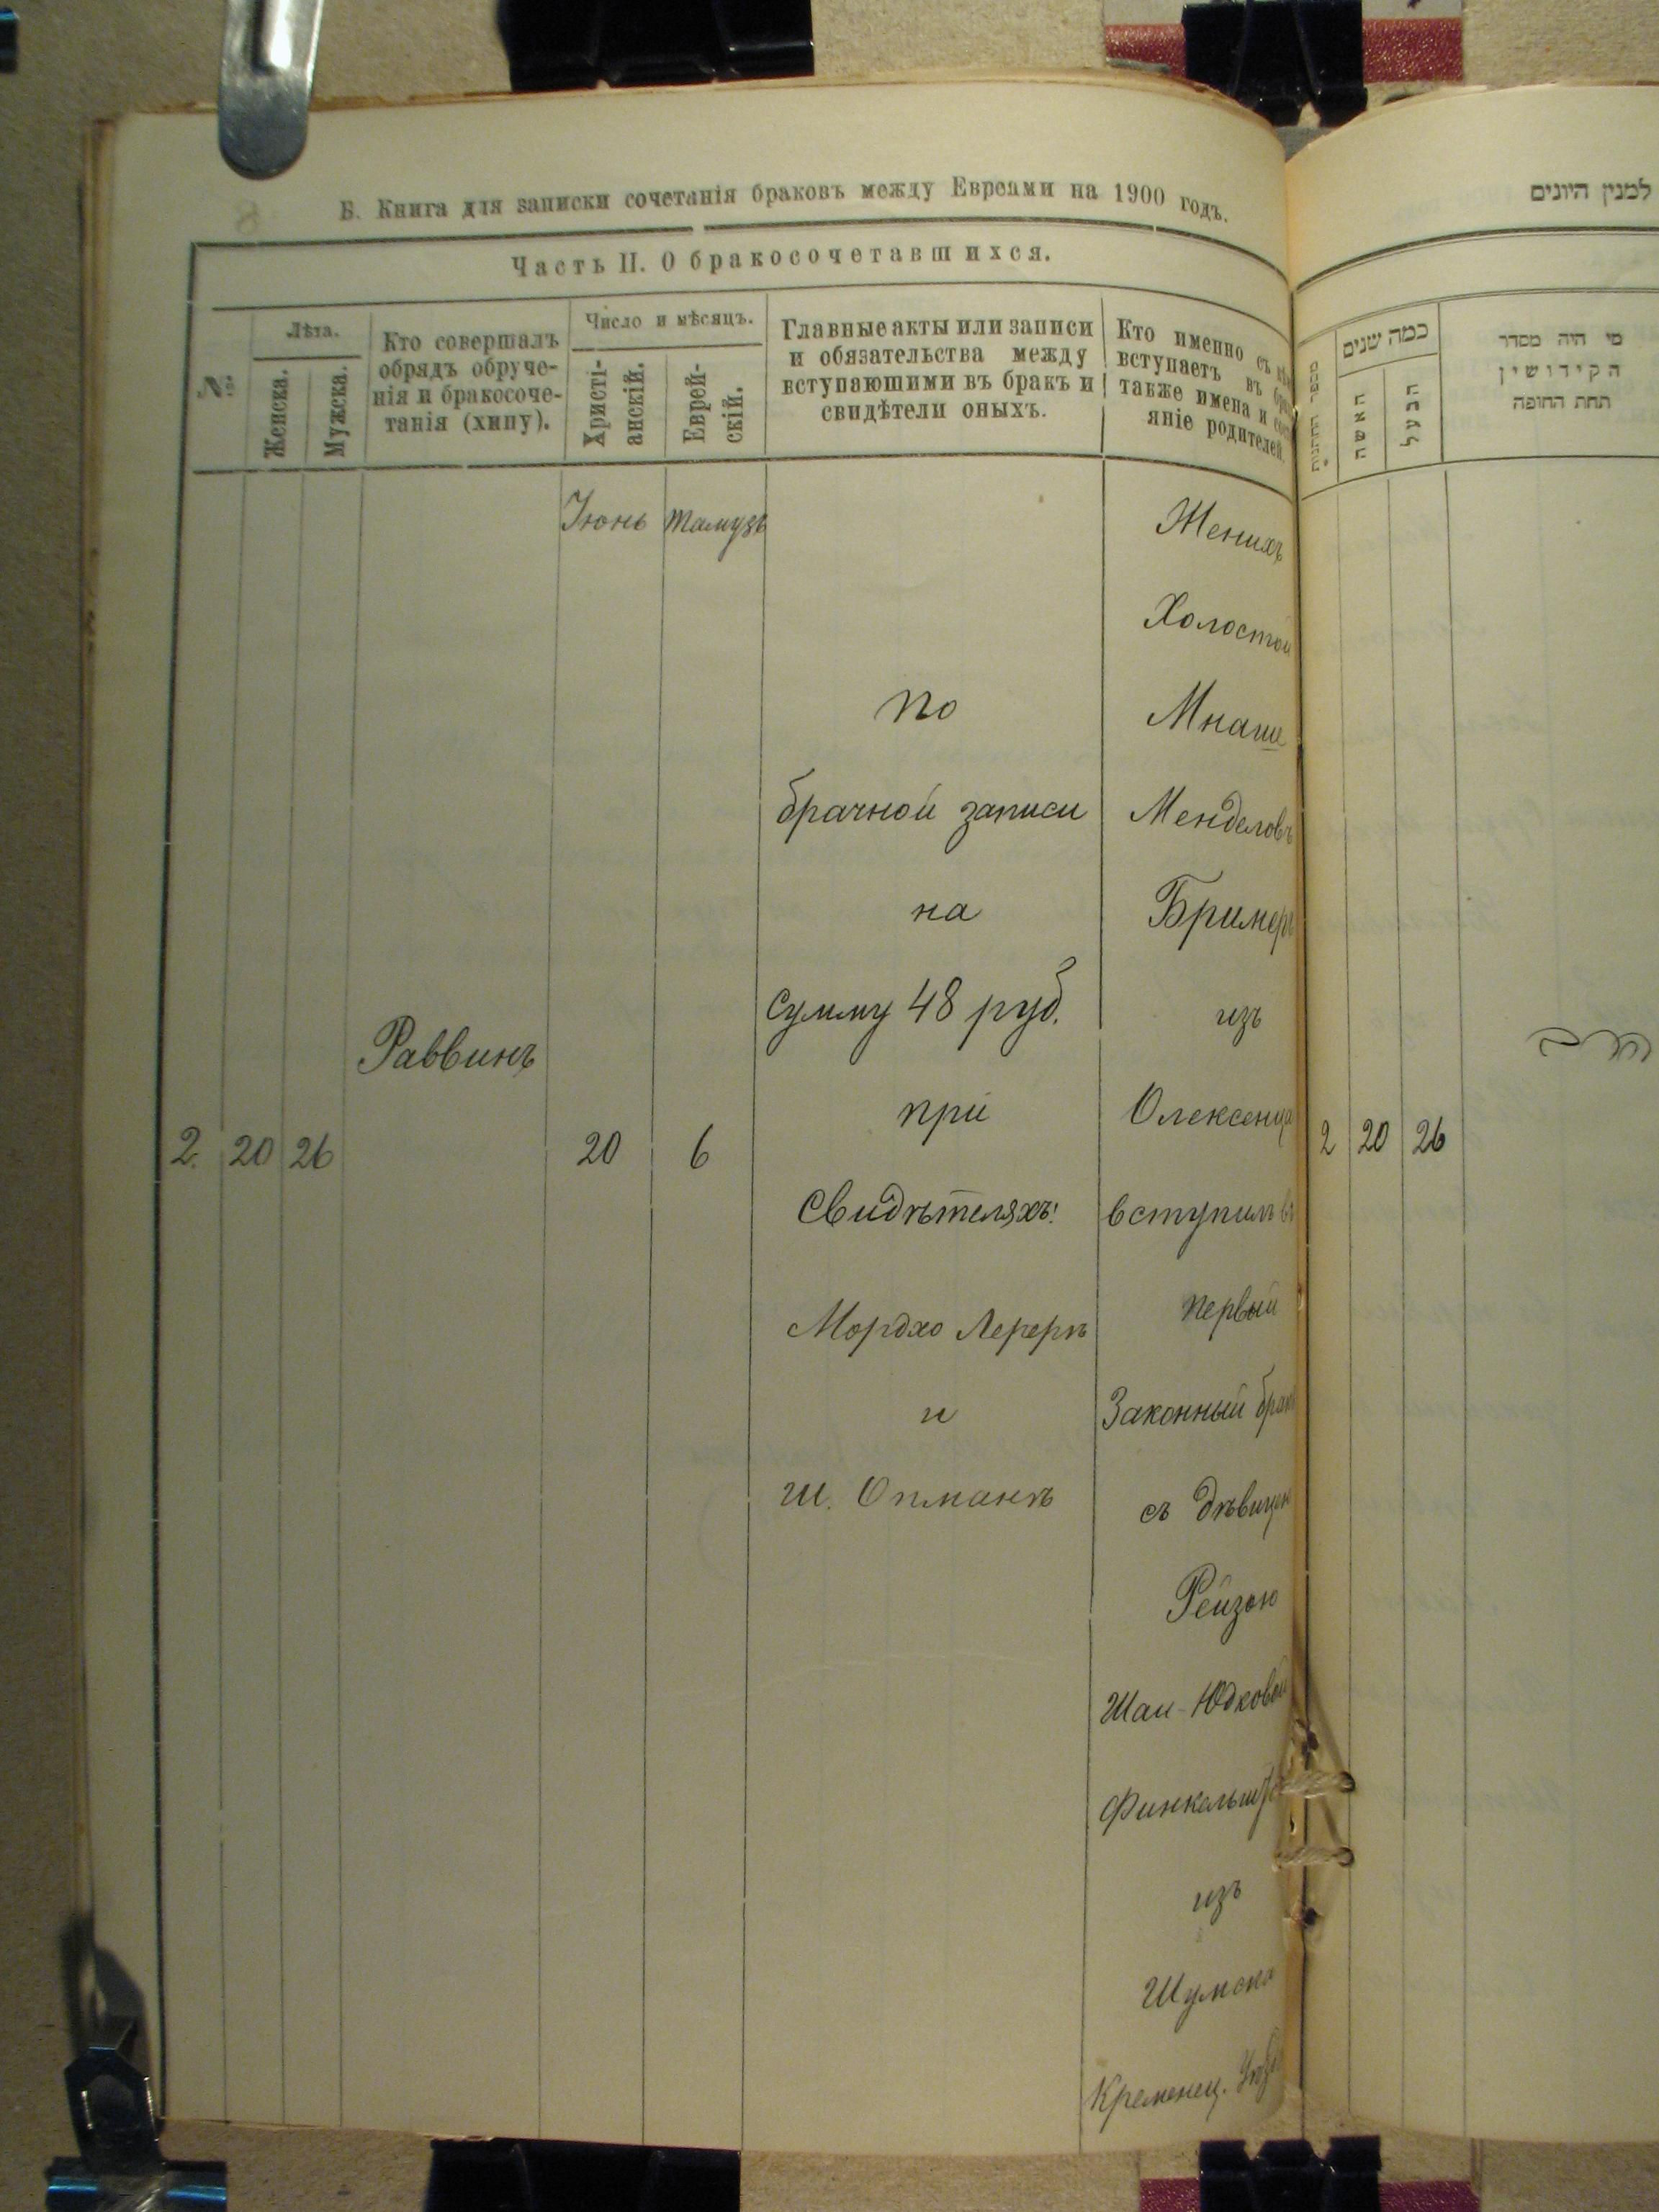 Б. Книга для записки сочетанія браковъ между Евреями на 1900 годъ.
Часть II. О бракосочетавшихся.
№
Лѣта.
Женска.
Мужска.
Кто совершалъ
обрядъ обруче-
нія и бракосоче-
танія (хипу).
Число и мѣсяцъ.
Христі-
анскій.
Еврей-
скій.
Главные акты или записи
и обязательства между
вступающими въ бракъ и
свидѣтели оныхъ.
Кто именно съ
вступаетъ въ
также имена и
яніе родителей.
Іюнь
Тамузъ
2. 20 26
Раввинъ
20
6
по
брачной записи
на
сумму 48 руб.
при
Свидѣтеляхъ:
Мордхо Лереръ
и
Ш. Опманъ
Женихъ
Холостой
Мнаше
Менделовъ
Бримеръ
изъ
Олексенца
вступилъ въ
первый
Законный бракъ
съ дѣвицею
Рейзою
Шаи-Юдковой
изъ
Шумска
Кременец.
למנין היונים
מספר החתונות
כמה שנים
האשה
הבעל
מי היה מסדר
הקידושין
תחת החופה
2 20 26